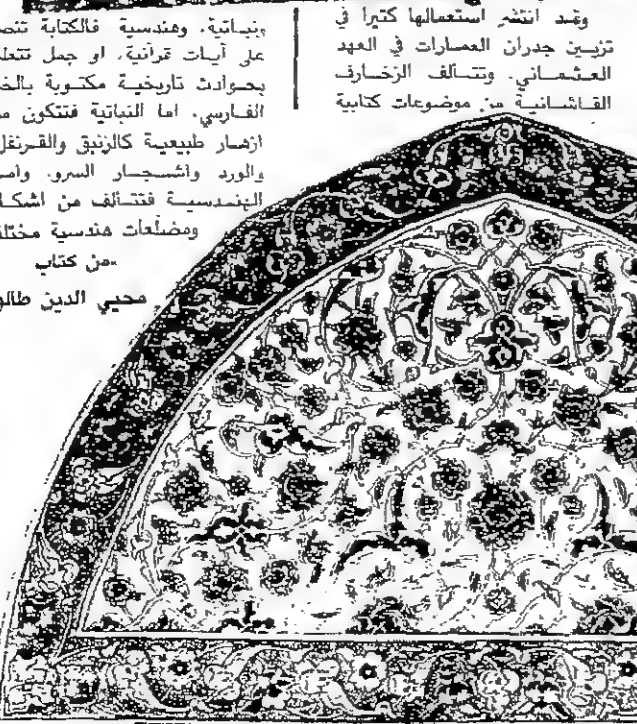 وقد انتشر استعمالها كثيرا في
تزيين جدران العمارات في العهد
العثماني. وتتألف الزخارف
القاشانية من موضوعات كتابية
ونباتية، وهندسية فالكتابة
على آيات قرآنية، او جمل
بحوادث تاريخية مكتوبة
الفارسي. اما النباتية فتتكون
ازهار طبيعية كالزنبق والقرنفل
والورد واشجار السرو.
الهندسية فتتألف من
ومضلعات هندسية
«من كتاب
محيي الدين